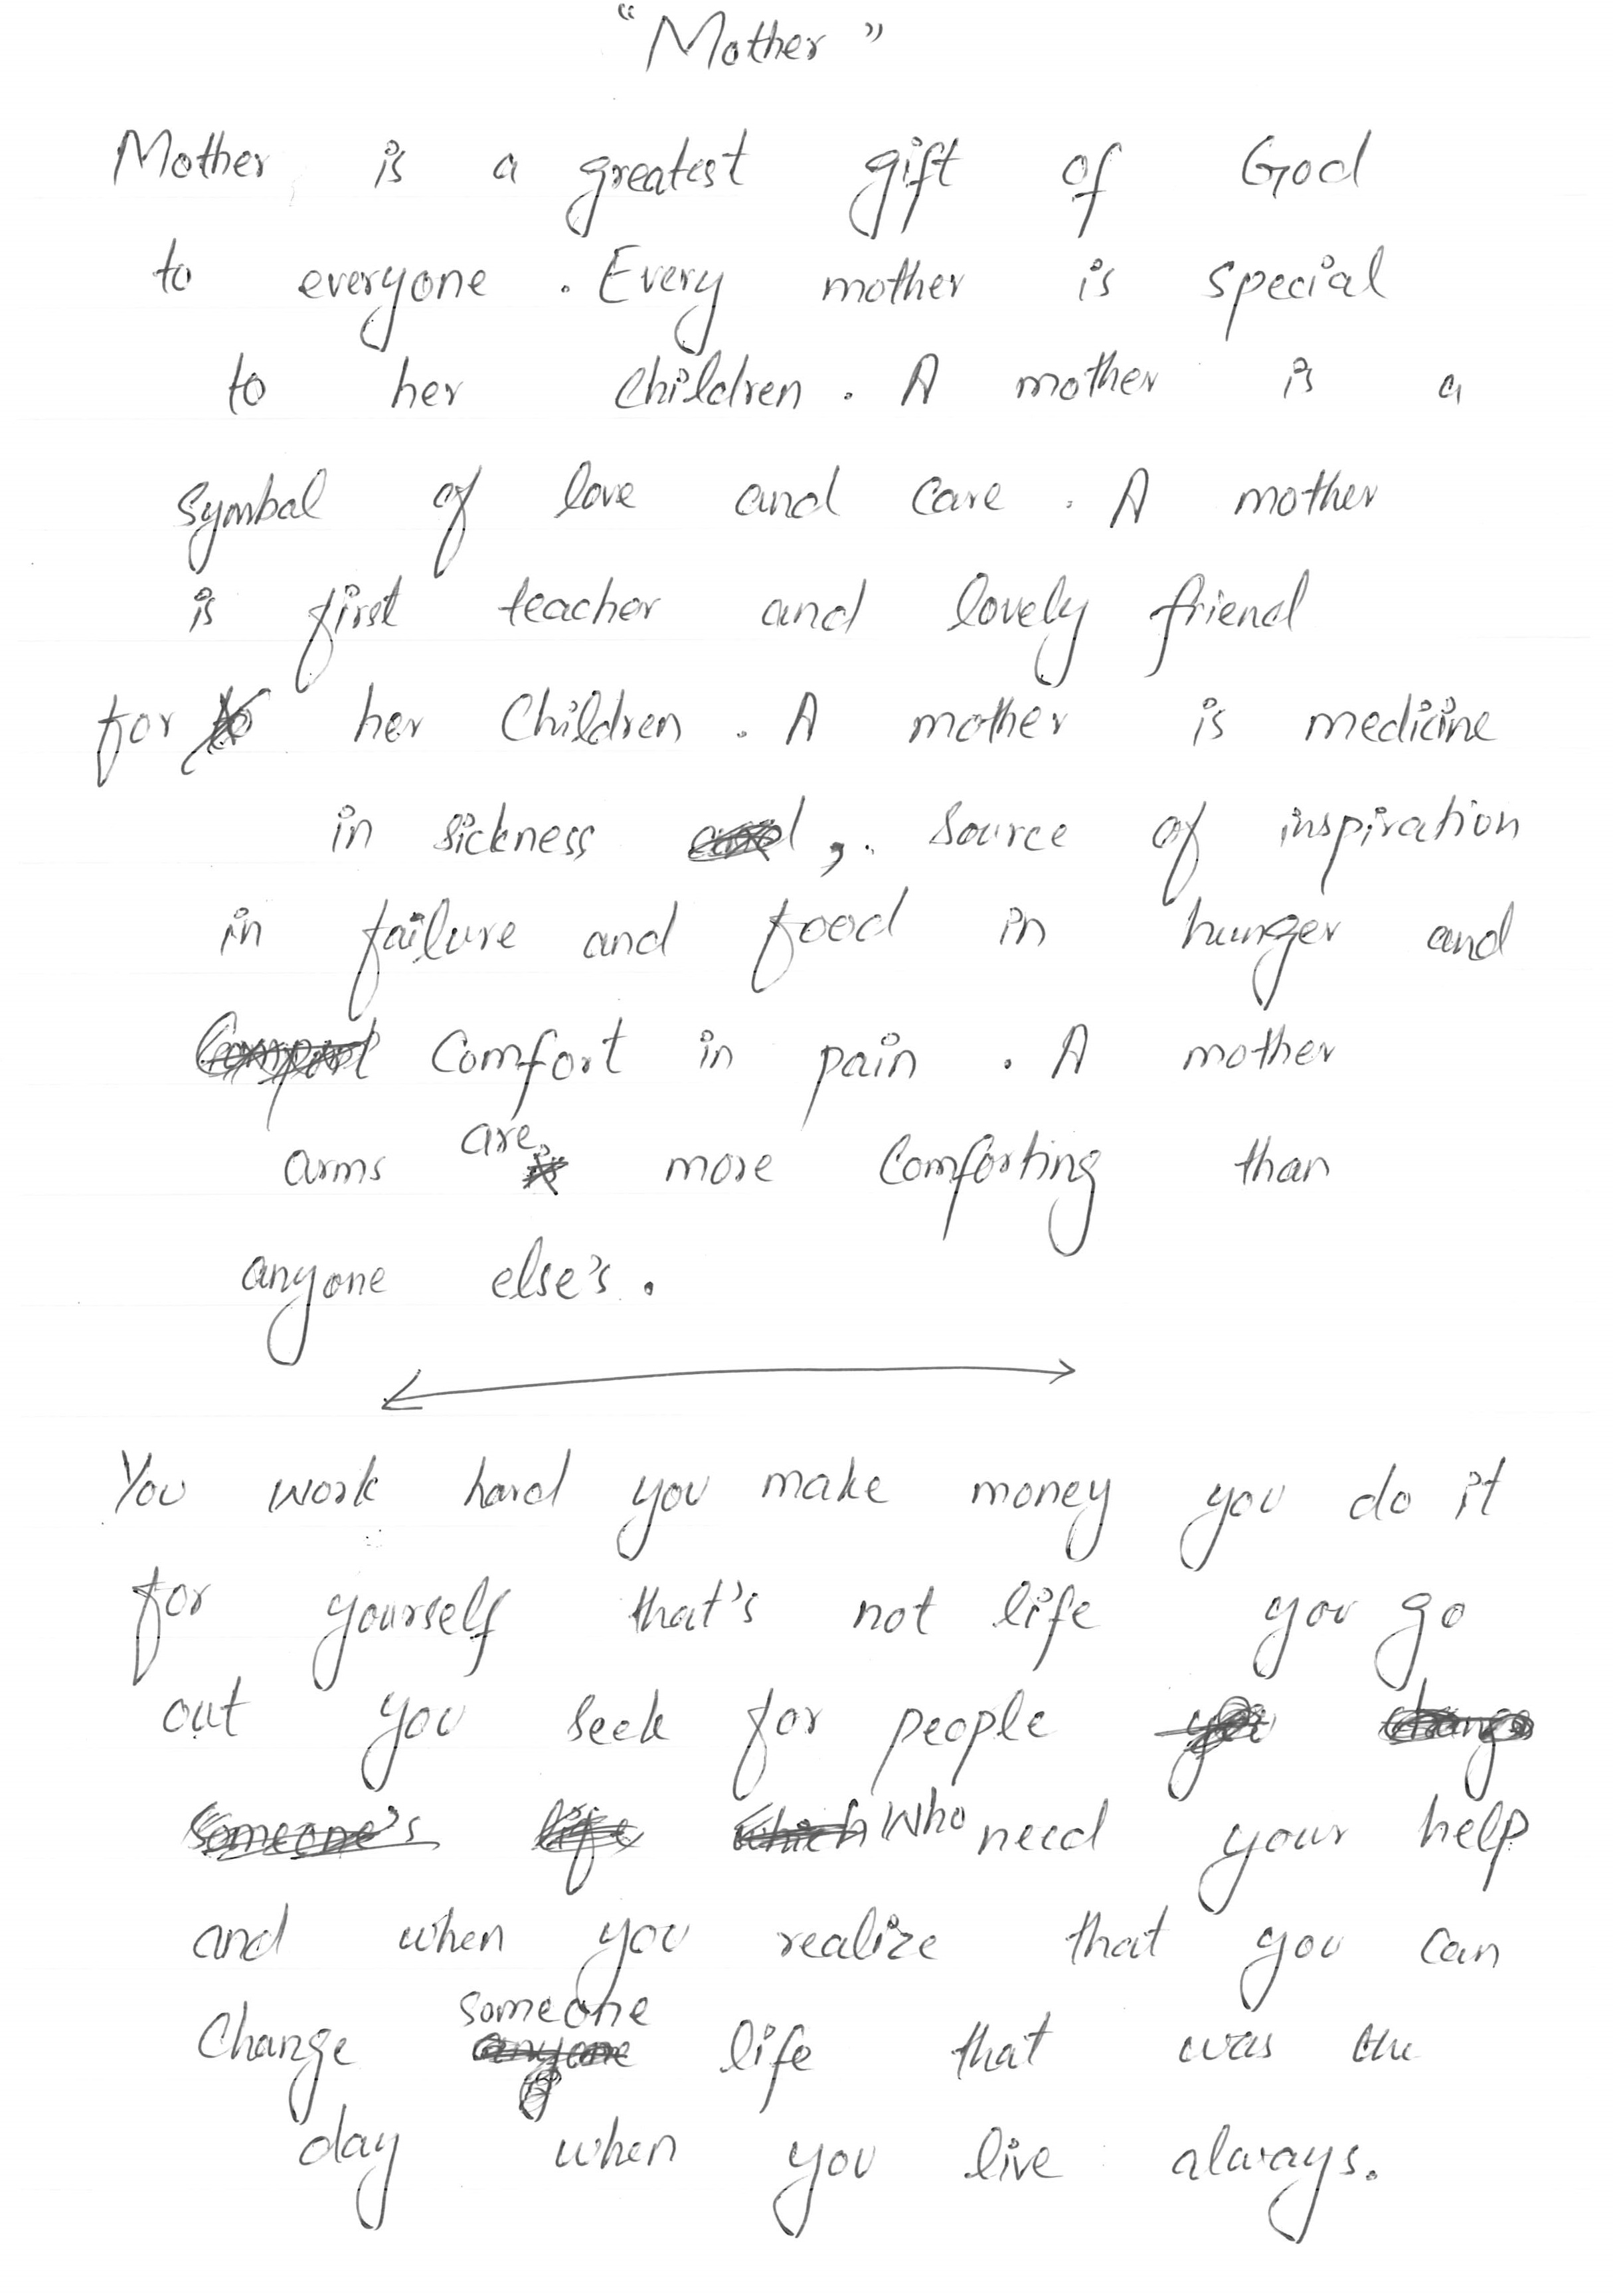 "Mother"
Mother is a greatest gift of God
to everyone . Every mother is special
to her children . A mother is a
symbal of love and care . A mother
is first teacher and lovely friend
for to her Children . A mother is medicine
in sickness and , . source of inspiration
in failure and food in hunger and
Comport Comfort in pain . A mother
are
arms is more Comforting than
anyone else's .
You work hard you make money you do it
for yourself that's not life you go
out you seek for people you change
someone's life which who need your help
and when you realize that you can
someone
Change anyone life that was the
day when you live always.